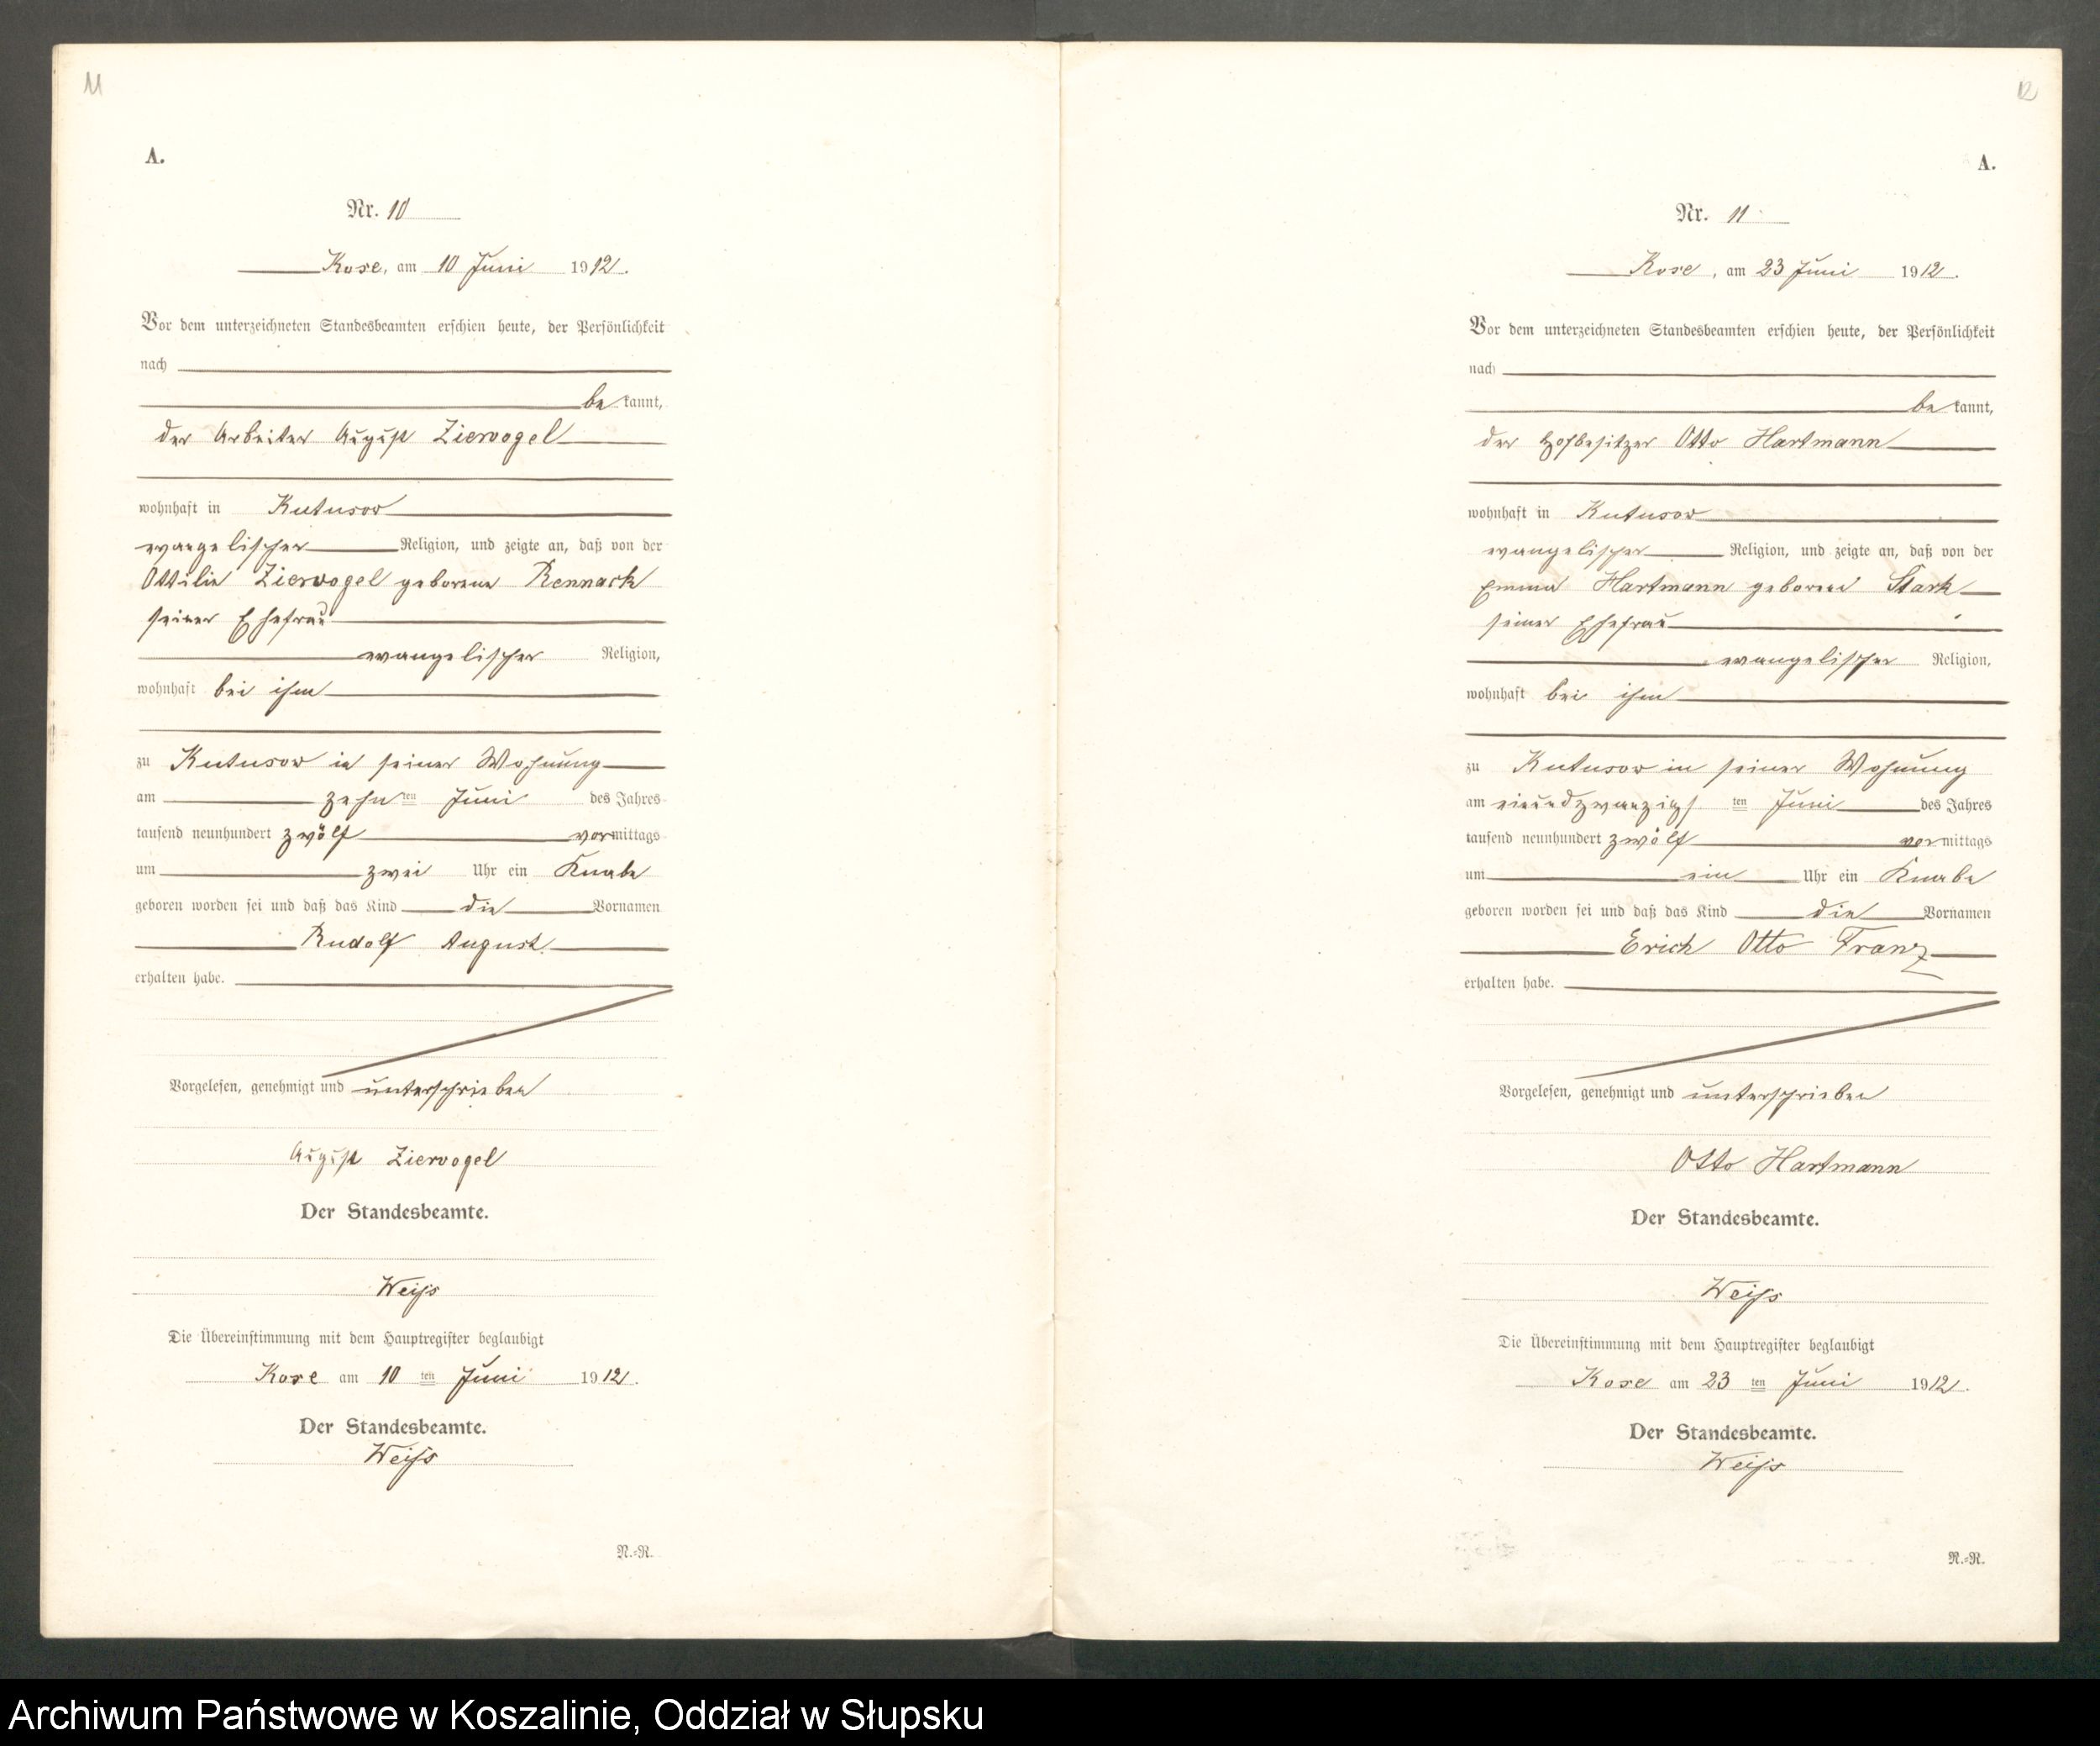 11
A.
Nr. 10
Kose, am 10 Juni 1912.
Vor dem unterzeichneten Standesbeamten erschien heute, der Persönlichkeit
nach
bekannt,
der Arbeiter August Ziervogel
wohnhaft in Kutusow
evangelischer Religion, und zeigte an, daß von der
Ottilie Ziervogel geborene Rennack
seiner Ehefrau
evangelischer Religion,
wohnhaft bei ihm
zu Kutusow in seiner Wohnung
am zehnten Juni des Jahres
tausend neunhundert zwölf vormittags
um zwei Uhr ein Knabe
geboren worden sei und daß das Kind die Vornamen
Rudolf August
erhalten habe.
Vorgelesen, genehmigt und unterschrieben
August Ziervogel
Der Standesbeamte.
Weiss
Die Übereinstimmung mit dem Hauptregister beglaubigt
Kose am 10 ten Juni 1912.
Der Standesbeamte.
Weiss
N.=R.
12
A.
Nr. 11
Kose, am 23 Juni 1912.
Vor dem unterzeichneten Standesbeamten erschien heute, der Persönlichkeit
nach
bekannt,
der Hofbesitzer Otto Hartmann
wohnhaft in Kutusow
evangelischer Religion, und zeigte an, daß von der
Emma Hartmann geborene Stark
seiner Ehefrau
evangelischer Religion,
wohnhaft bei ihm
zu Kutusow in seiner Wohnung
am einundzwanzigs ten Juni des Jahres
tausend neunhundert zwölf vormittags
um ein Uhr ein Knabe
geboren worden sei und daß das Kind die Vornamen
Erich Otto Franz
erhalten habe.
Vorgelesen, genehmigt und unterschrieben
Otto Hartmann
Der Standesbeamte.
Weiss
Die Übereinstimmung mit dem Hauptregister beglaubigt
Kose am 23 ten Juni 1912.
Der Standesbeamte.
Weiss
N.=R.
Archiwum Państwowe w Koszalinie, Oddział w Słupsku